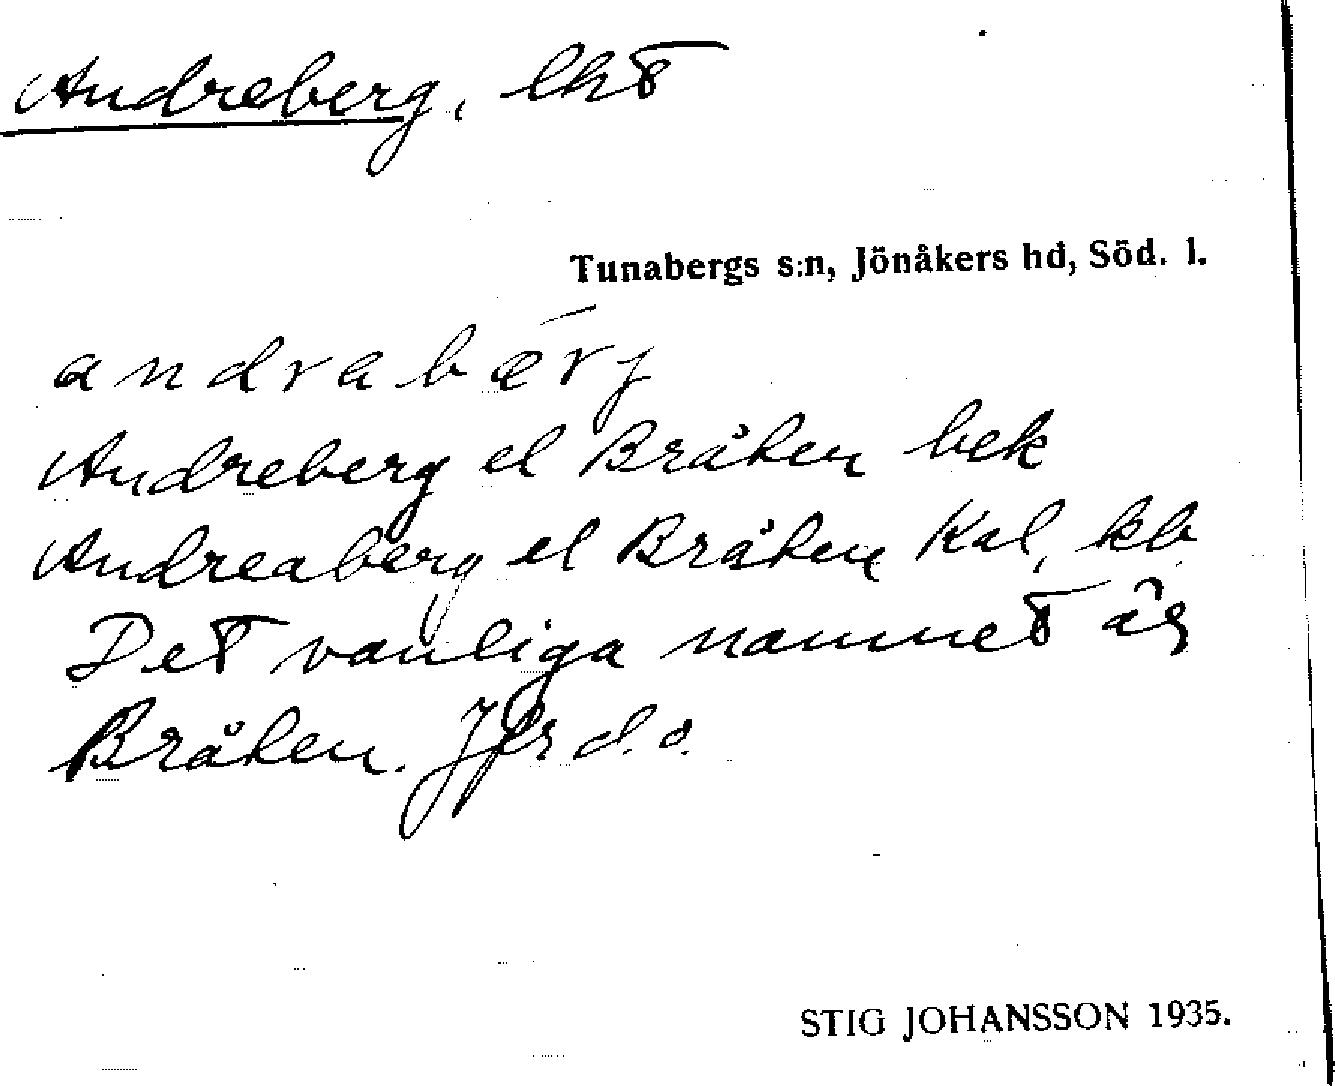 Andreberg, lht
Tunabergs s:n, Jönåkers hd, Söd. l.
andrabærj
Andreberg el Bråten bek
Andreaberg el Bråten Kal, kb
Det vanliga namnet är
Bråten. Jfr d.o.
STIG JOHANSSON 1935.